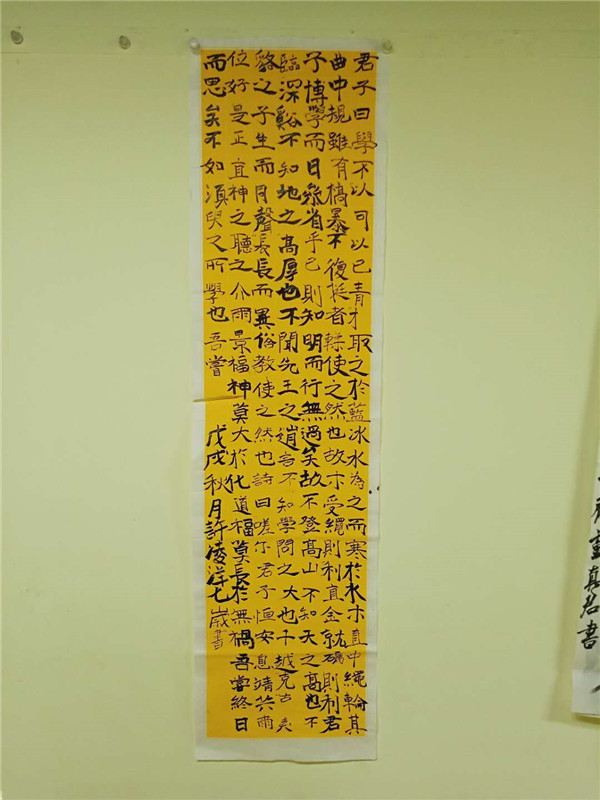 君子曰學不以可以已青才取之於藍冰水為之而寒於水木直中繩輪其
曲中規雖有槁暴不復挺者輮使之然也故木受繩則利直金就礪則利君
子博學而日參省乎己則知明而行無過矣故不登高山不知天之高也不
臨深谿不知地之高厚也不聞先王之道言不知學問之大也干越克古矣
貉之子生而月聲長長而異俗教使之然也詩曰嗟尔君子恒安息靖共爾
位好是正宜神之聽之介爾景福神莫大於化道福莫長於無禍吾嘗終日
而思矣不如湏臾之所學也吾嘗
戊戌秋月許凌洋七歲書
重真君書